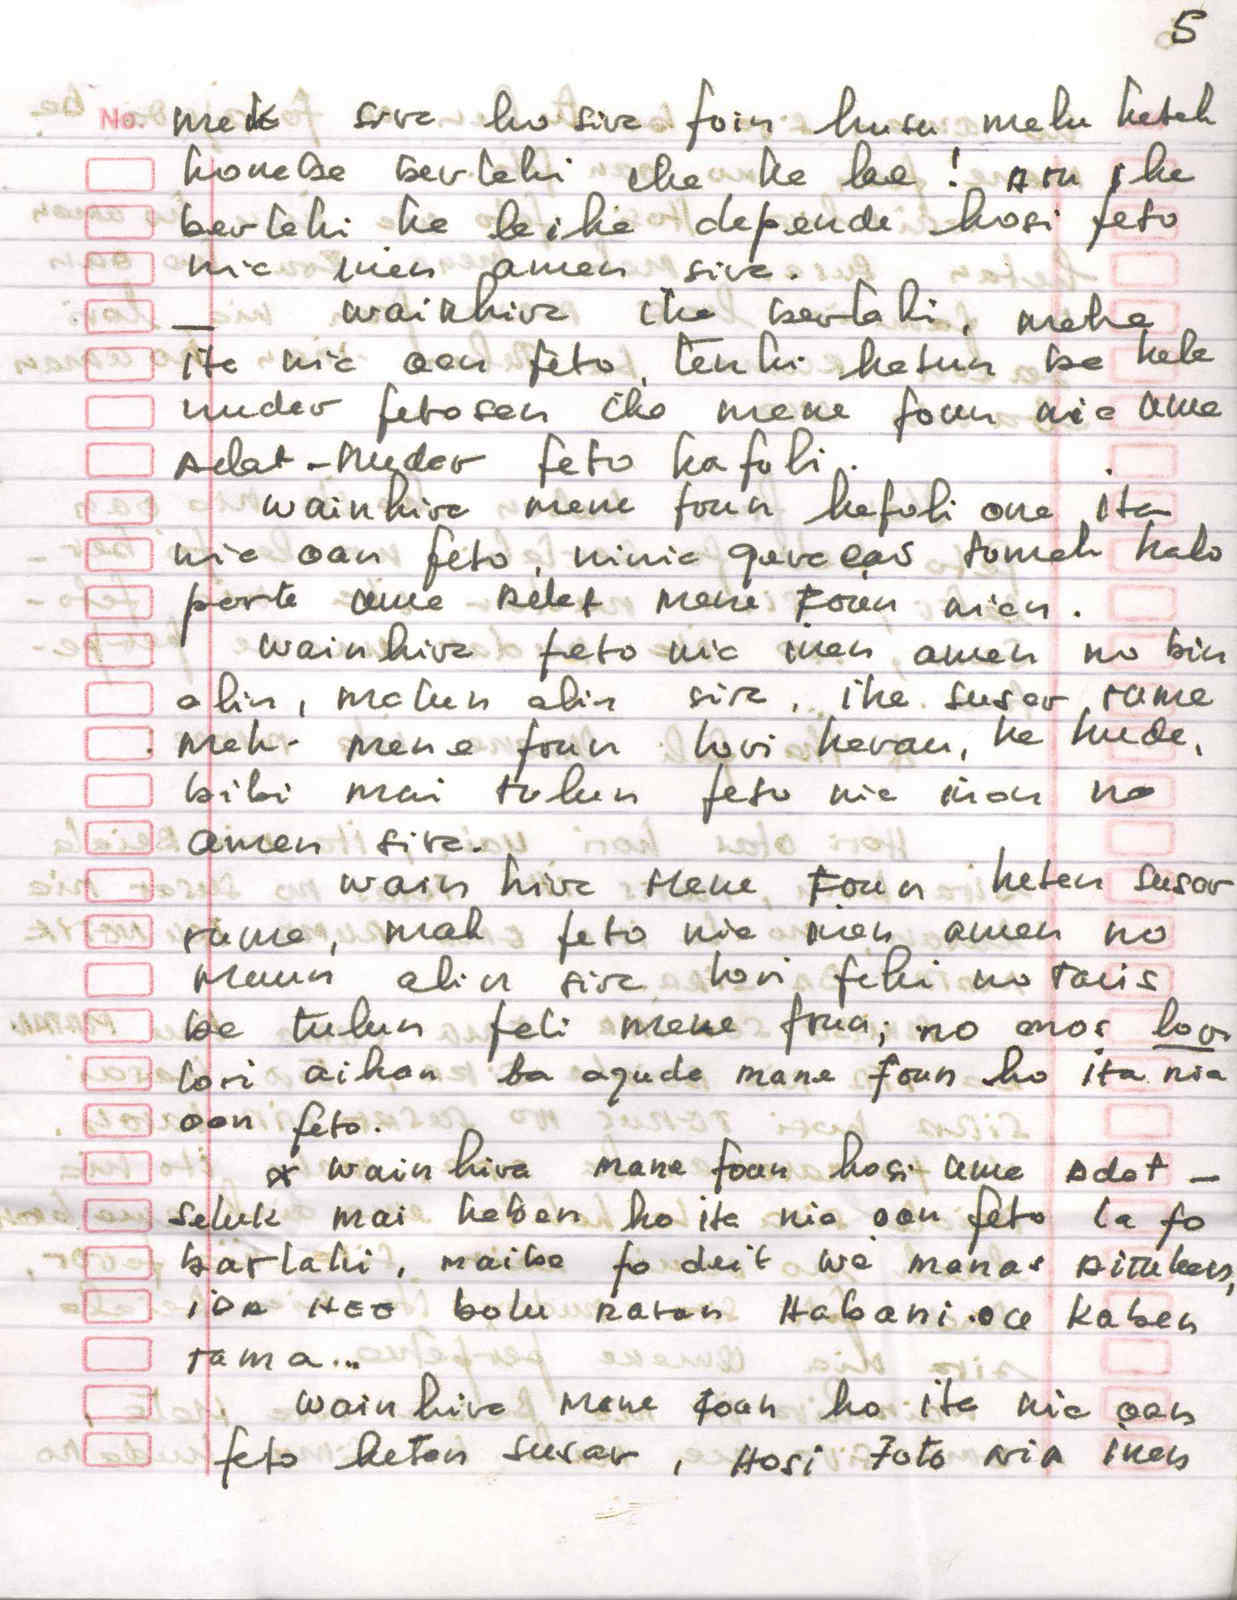 5
No. mak sira ho sira foin husu malu katak
konaba barlaki iha ka lae! Atu iha
barlaki ka laiha depende hosi feto
nia inan aman sira.
— wainhira iha barlaki, maka
ita nia oan feto, tenki hatun ba hela
nudar fetosan iha mane foun nia uma
Adat - Nudar feto hafoli.
wainhira mane foun hafoli ona ita
nia oan feto, ninia quracas tomak halo
parte uma Adat mane Foun nian.
wainhira feto nia inan, aman no bin
alin, maun alin sira, iha susar ruma
mak- mane foun lori karau, ka kuda,
bibi mai tulun feto nia inan no
aman sira.
wain hira Mane Foun hetan susar
ruma, mak feto nia inan aman no
maun alin sira lori fahi no tais
ba tulun fali mane foun; no mos lor
lori aihan ba ajuda mane foun ho ita nia
oan feto.
* wainhira mane foun hosi uma Adat -
seluk mai kaben ho ita nia oan feto la fo
barlaki, maibe fo deit we manas aitukan,
IDA NEE bolu naran Habani. oce kaben
tama...
wainhira mane foun ho ita nia oan
feto hetan susar, Hosi Foto NiA inan